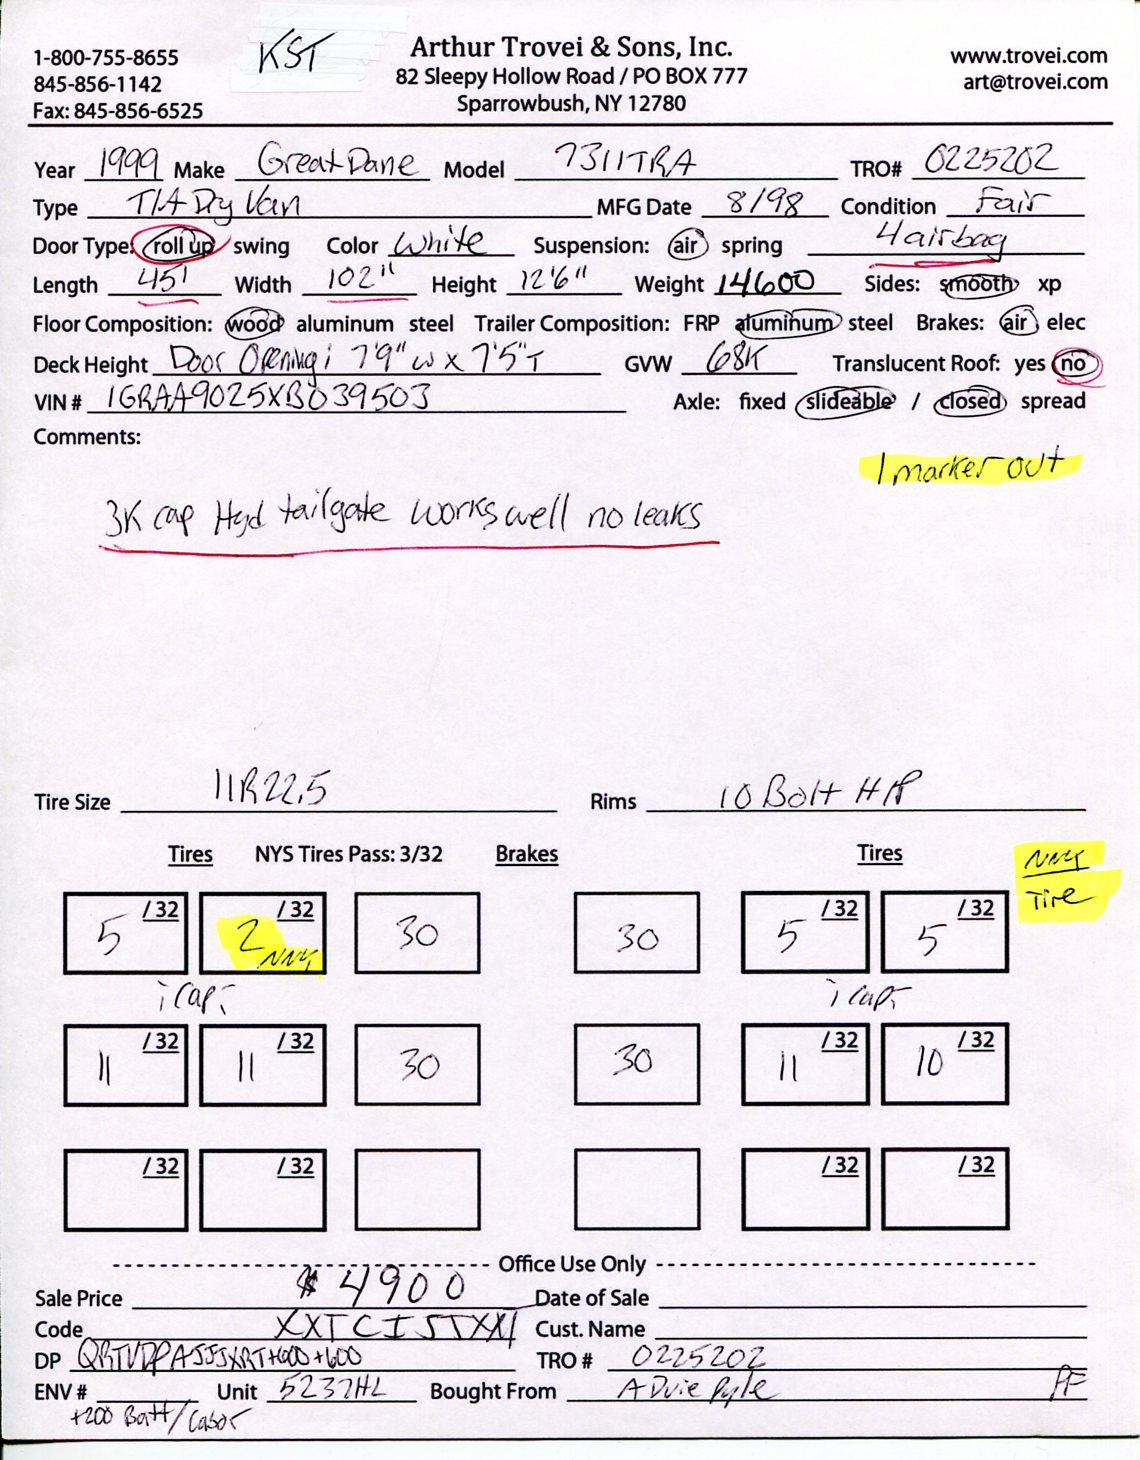 KST
Arthur Trovei & Sons, Inc.
82 Sleepy Hollow Road / PO BOX 777
Sparrowbush, NY 12780
1-800-755-8655
845-856-1142
Fax: 845-856-6525
www.trovei.com
art@trovei.com
Year 1999 Make Great Dane Model 7311TRA TRO# 0225202
Type T/A Dry Van MFG Date 8/98 Condition Fair
Door Type: roll up swing Color White Suspension: air spring 4 airbag
Length 45' Width 102" Height 12'6" Weight 14600 Sides: smooth xp
Floor Composition: wood aluminum steel Trailer Composition: FRP aluminum steel Brakes: air elec
Deck Height Door Opening: 7'9" W x 7'5" T GVW 68K Translucent Roof: yes no
VIN # 1GRAA9025XB039503 Axle: fixed slideable / closed spread
Comments:
1 marker out
3K cap Hyd tailgate works well no leaks
Tire Size 11R22.5 Rims 10 Bolt H/P
Tires NYS Tires Pass: 3/32 Brakes Tires
NNY
Tire
5 /32 2 /32 NNY 30 30 5 /32 5 /32
; cap ; ; cap ;
11 /32 11 /32 30 30 11 /32 10 /32
/32 /32 /32 /32
Office Use Only
Sale Price $4900 Date of Sale
Code XXTCISTXX Cust. Name
DP +600+600 TRO # 0225202
ENV # Unit 5237HL Bought From A Duie Pyle PF
+200 Batt/Labor